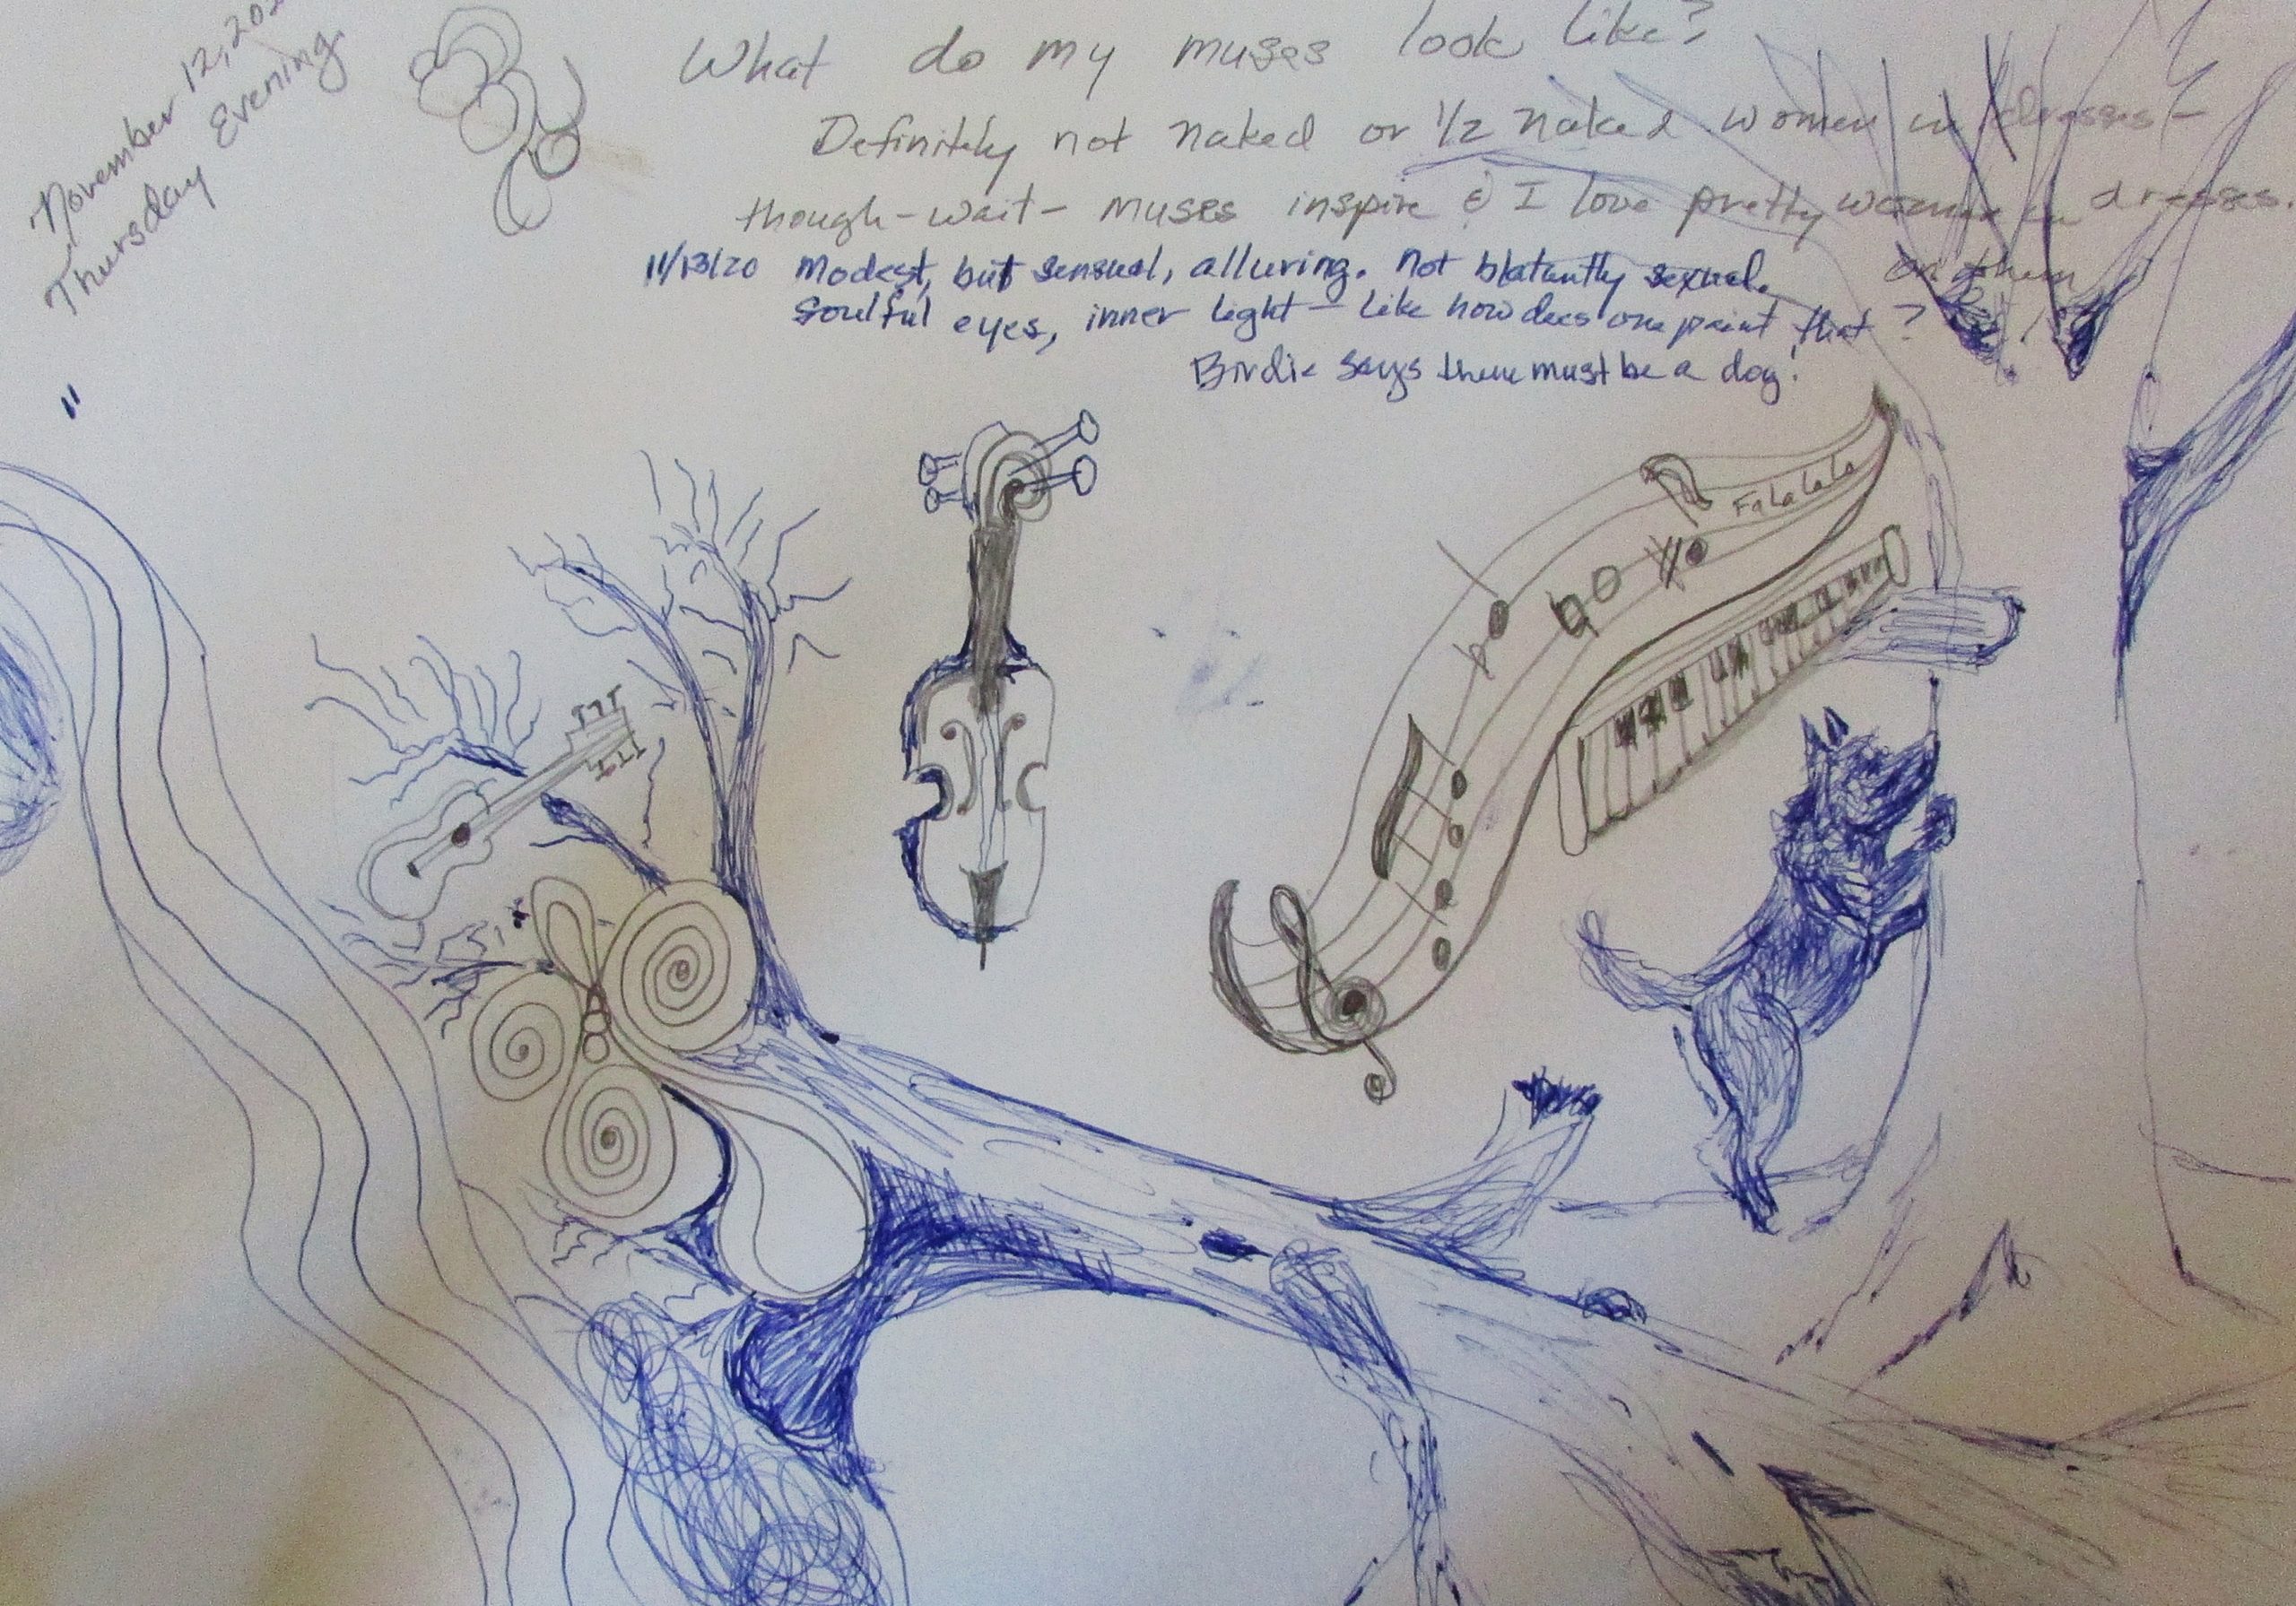 November 12, 202
Thursday Evening
What do my muses look like?
Definitely not naked or 1/2 naked women in dresses-
though-wait- muses inspire & I love pretty women in dresses.
11/13/20 Modest, but sensual, alluring. Not blatantly sexual.
on them
Soulful eyes, inner light - like how does one paint that?
Birdie says there must be a dog!
"
Fa La La La